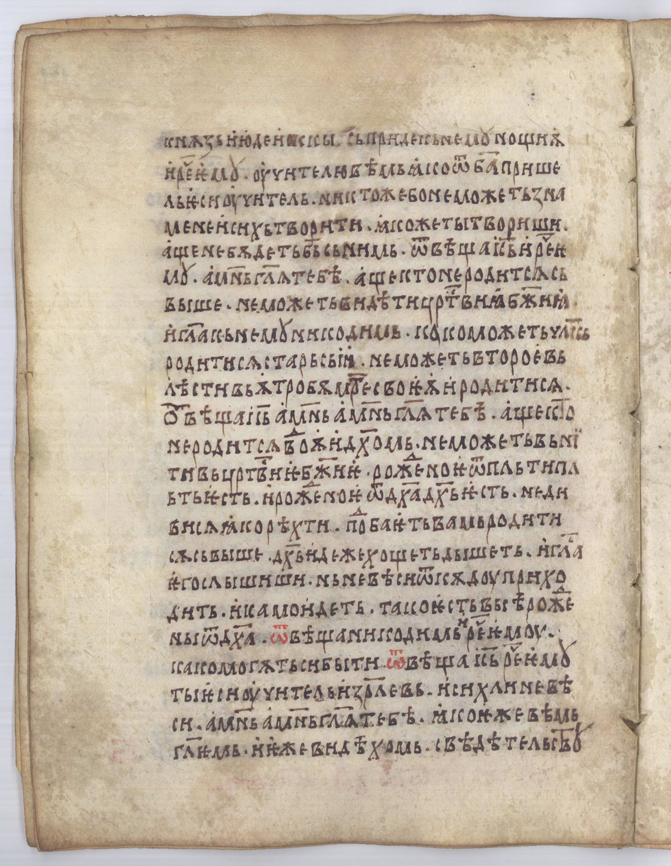 кнѧзь июденскы . сь приде кь немꙋ нощиѫ
и рⷱ҇е емꙋ . оучителю вѣмь ꙗко ѿ б҃а прише
ль еси оучитель . никтоже бо не может ь зна
мени сихь творити . ꙗкоже ты твориши .
аще не бѫдеть б҃ь сь нимь . ѿвѣща і҃ь и рⷱ҇е е
мꙋ . амн҃ь гл҃ѧ тебѣ . аще кто не родитсѧ сь
выше . не можеть видѣти црⷭ҇твиꙗ б҃жиꙗ .
и гл҃а кь немꙋ никодимь . како можеть чл҃кь
родитисѧ старь сыи . не можеть второе вь
лѣсти вь ѫтробѫ мт҃ре своеѫ и родитисѧ .
ѿвѣща і҃ь амн҃ь амн҃ь гл҃ѧ тебѣ . аще кто
не родитсѧ водоѫ и дх҃омь . не можеть вьнї
ти вь црⷭ҇твие б҃жие . рожⷣеное ѿ пльти пл
ьть есть . и рожⷣеное ѿ дх҃а дх҃ь есть . не ди
висѧ ꙗко рѣхти . поⷣбаеть вамь родити
сѧ сьвыше . дх҃ь идеже хощеть дышеть . и гл҃а
его слышиши . нь не вѣси ѿкѫдоу прихо
дить . и камо идеть . тако есть вьсѣ рожⷣе
ны ѿ дх҃а . ѿвѣща никодимь и рⷱ҇е емоу .
како могѫть си быти ѿвѣща і҃ь рⷱ҇е емꙋ
ты еси оучитель из҃левь . и сихли не вѣ
си . амн҃ь амн҃ь гл҃ѧ тебѣ . ꙗко иже вѣмь
гл҃емь . и иже видѣхомь . свѣдѣтельствꙋ